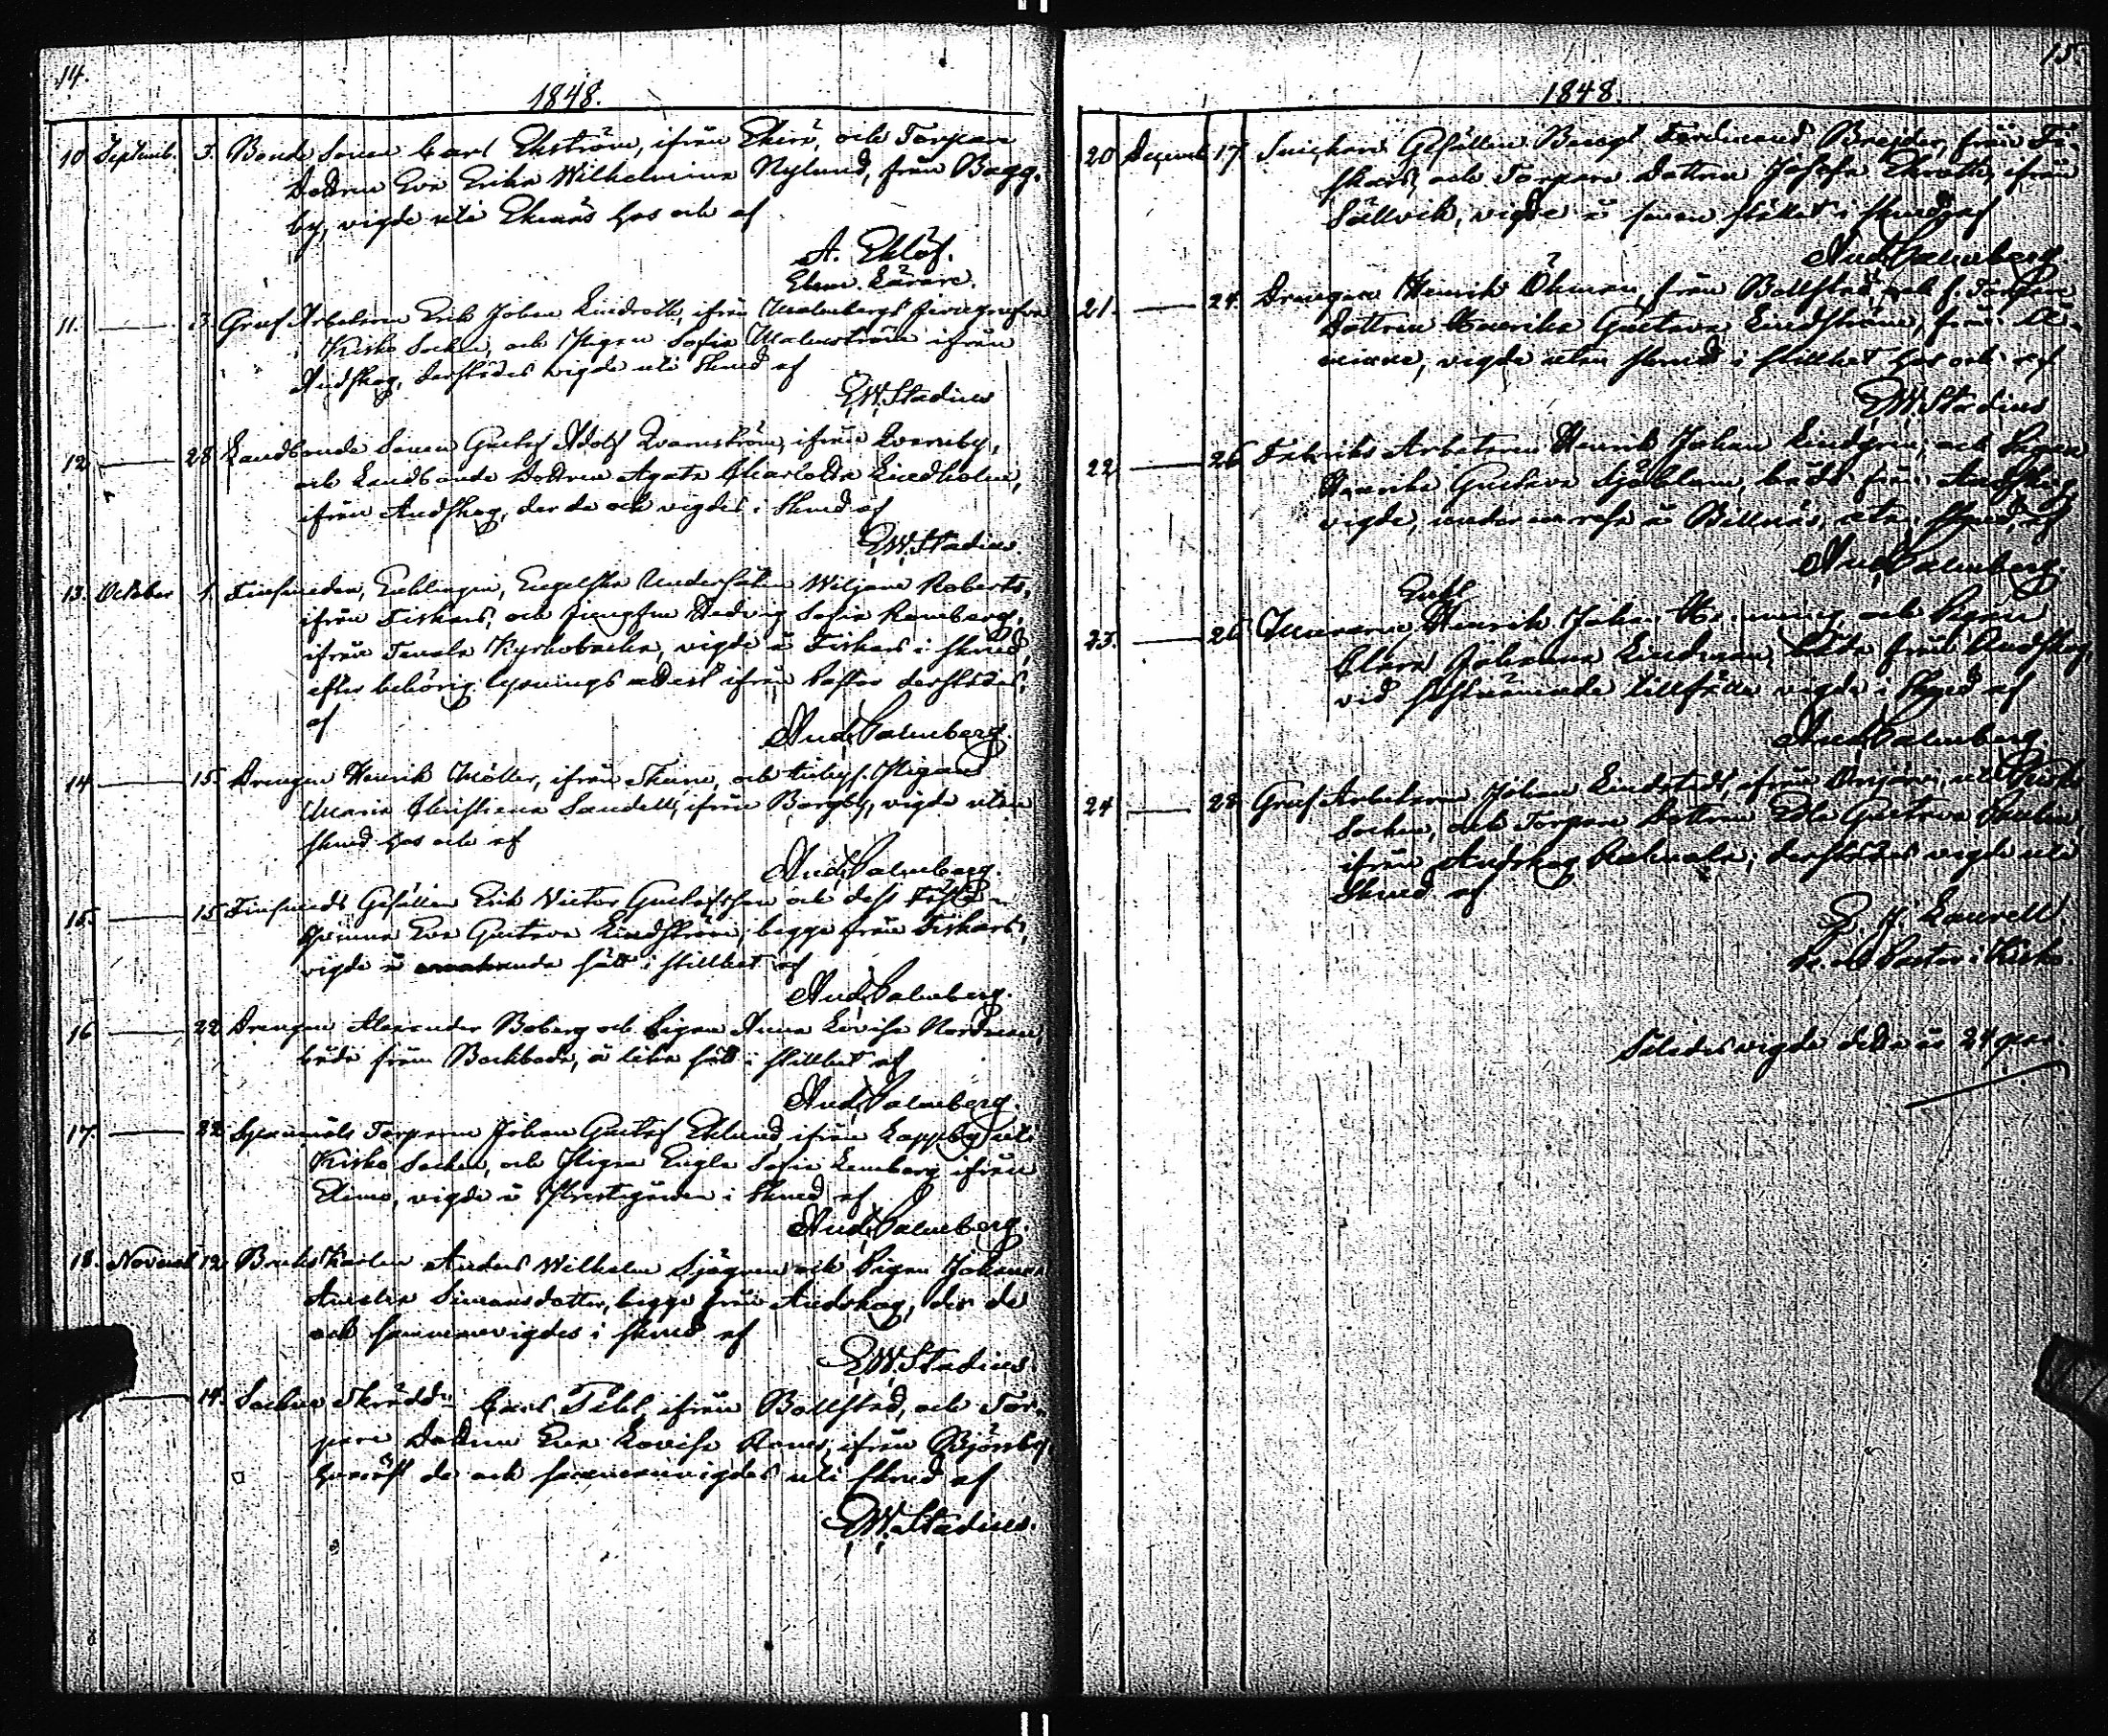 14.
1848.
10. Septemb. 3. Bonde Sonen Carl Ekström, ifrån Ekerö, och Torpare
Dottren Eva Erika Wilhelmina Nylund, från Bagg-
by, vigde uti Ekenäs hos och af
A. Eklöf.
Elem. Lärare.
11. — 3. Gruf Arbetaren Erik Johan Lindroth, ifrån Malmbergs jerngrufva
i Kisko Socken, och Pigan Sofia Malmström ifrån
Andskog, derstädes vigde uti Skrud af
E.W. Stadius
12 — 28. Landbonde Sonen Gustaf Adolf Qvarnström, ifrån Qvarnby,
och Landbonde Dottren Agata Charlotta Lindholm,
ifrån Andskog, der de ock vigdes i Skrud af
E.W. Stadius
13. October 1. Finsmeden, Enklingen, Engelska Undersåten Wiljam Roberts,
ifrån Fiskars, och Jungfrun Hedvig Sofia Ramberg,
ifrån Tenala Kyrkobacka, vigde å Fiskars i skrud,
efter behörig lysnings attest ifrån Pastor derstädes,
af
And. Palmberg.
14 — 15. Drengen Henrik Möller, ifrån Skuru, och Pigan
Maria Christina Sandell, ifrån Borgby, vigde utan
skrud hos och af
And. Palmberg.
15. — 15. Finsmeds Gesällen Erik Victor Gustafsson och dess Fäste-
qvinna Eva Gustava Lindström, begge från Fiskars,
vigde å sätt i stillhet af
And. Palmberg.
16 — 22. Drengen Alexander Boberg och Pigan Anna Lovisa Nordman,
både från Backboda, å lika sätt i stillhet af
And. Palmberg.
17. — 22. Spanmåls Torparen Johan Gustaf Eklund, ifrån Koppby uti
Kisko Socken, och Pigan Engla Sofia Lemberg ifrån
Elimo, vigde å Prestgården i Skrud af
And. Palmberg.
18. Novemb. 12. Bruks Karlen Anders Wilhelm Sjögren och Pigan Johanna
Amalia Simonsdotter, begge från Andskog, der de
ock sammanvigdes i skrud af
E.W. Stadius.
— 14. Socken Skrädd. Carl Fihl ifrån Bollstad, och Tor-
pare Dottren Eva Lovisa Roms, ifrån Björsby,
hvarest de ock sammanvigdes uti skrud af
E.W. Stadius.
15.
1848.
20 Decemb. 17. Snickare Gesällen Bengt Ferdinand Brejder, från Fi-
skars, och Torpare Dottren Josefa Ekroth, ifrån
Sällvik, vigde å samma stället i skrud af
And. Palmberg
21. — 24. Drengen Henrik Öhman, från Bollstad, och f. Torpare
Dottren Henrika Gustava Lindström, från
vigde utan skrud i stillhet hos och af
E.W. Stadius
22 — 26 Fabriks Arbetaren Henrik Johan Lindgren, och Pigan
Henrika Gustava Sjöblom, både från Andskog,
vigde, under resa å Billnäs, utan skrud, af
And. Palmberg.
Enkl
23. — 26 Muraren Henrik Johan och Pigan
Clara Johanna Lindman, både från Andskog,
vid tillfälle vigde i Skrud af
And. Palmberg.
24 — 28 Gruf Arbetaren Johan Lindstedt, ifrån Orijärvi, uti Kisko
Socken, och Torpare Dottren Edla Gustava
ifrån Andskog derstädes vigde uti
Skrud af
Laurell.
Pastor i Kisko.
Således vigde detta år 24 par.